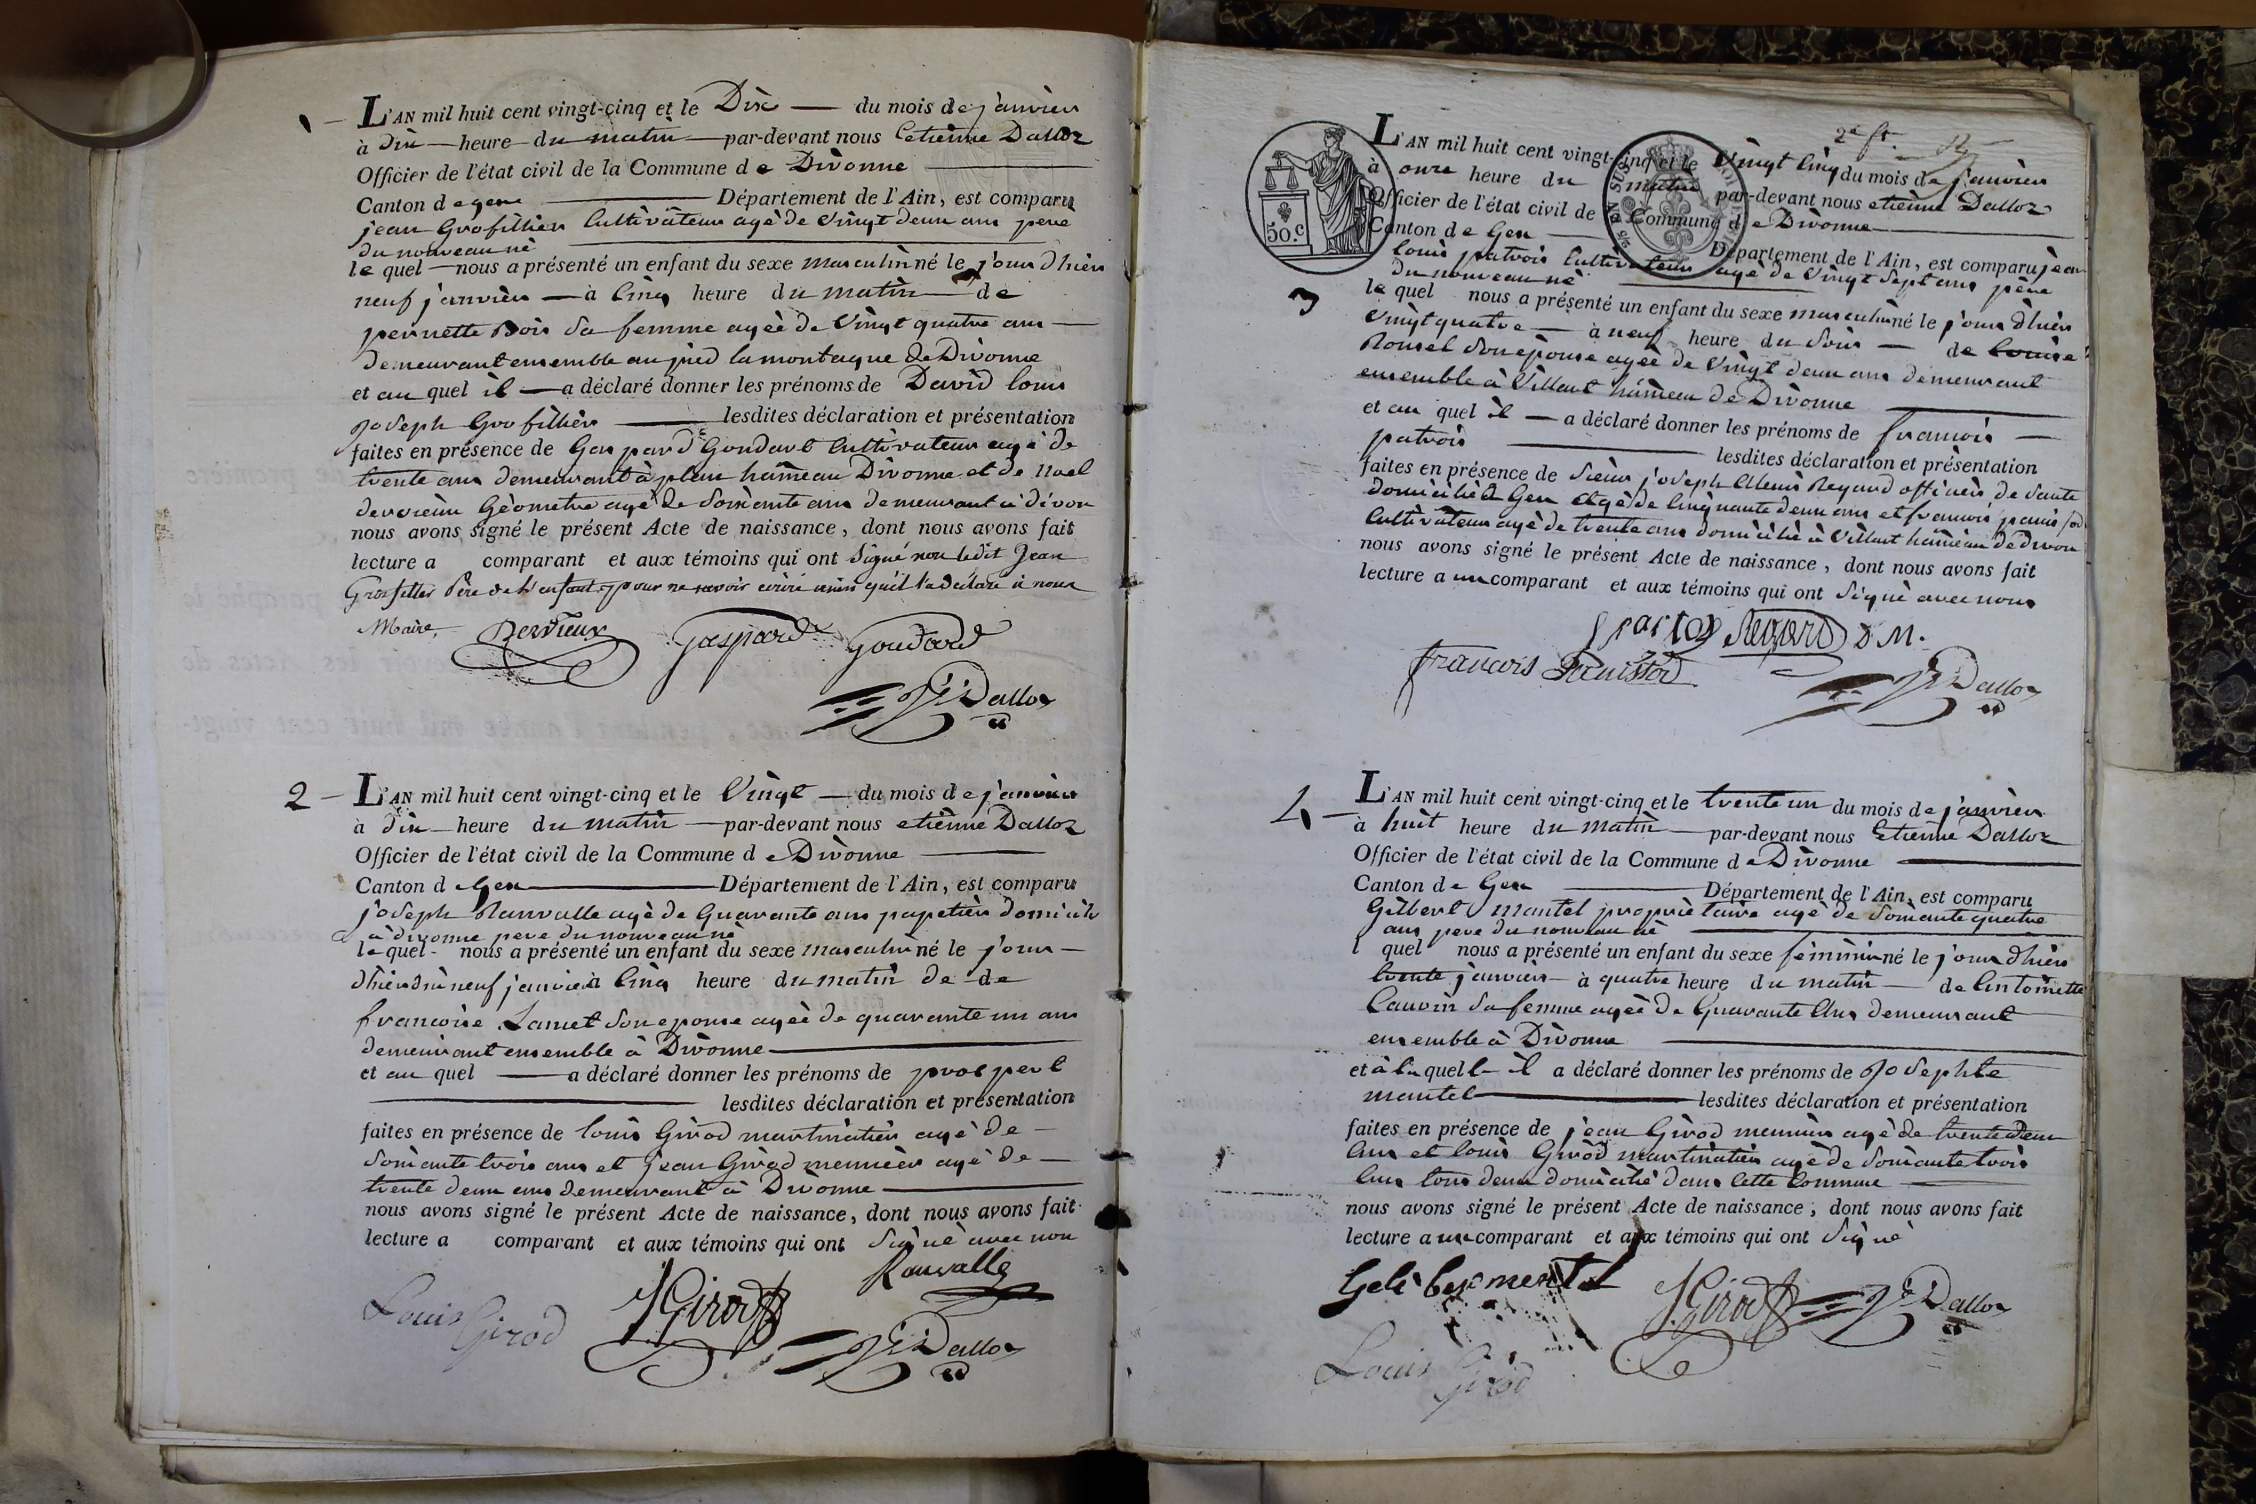 1 –
L'AN mil huit cent vingt-cinq et le Dix — du mois de janvier
à dix — heure du matin — par-devant nous Etienne Dalloz
Officier de l'état civil de la Commune de Divonne
Canton de gex — Département de l'Ain, est comparu
jean Grosfillier Cultivateur agé de vingt deux ans pere
du nouveau né
le quel — nous a présenté un enfant du sexe masculin né le jour d'hier
neuf janvier — à Cinq heure du matin — de
pernette Bois sa femme agée de vingt quatre ans —
demeurant ensemble au pied la montagne de Divonne
et au quel il — a déclaré donner les prénoms de David louis
joseph Grosfillier — lesdites déclaration et présentation
faites en présence de Gaspard Goudard Cultivateur agé de
trente ans demeurant à plan hameau Divonne et de Noel
dervieux Géometre agé de soixante ans demeurant à divon
nous avons signé le présent Acte de naissance, dont nous avons fait
lecture a comparant et aux témoins qui ont signé non ledit Jean
Grosfillier Père de l'enfant, pour ne savoir écrire ainsi qu'il l'a déclaré à nous
Maire, Dervieux Gaspard Goudard
Dalloz
2 –
L'AN mil huit cent vingt-cinq et le Vingt — du mois de janvier
à dix — heure du matin — par-devant nous etienne Dalloz
Officier de l'état civil de la Commune de Divonne
Canton de Gex — Département de l'Ain, est comparu
joseph Ranvalle agé de Quarante ans papetier domicilié
à divonne pere du nouveau né
le quel - nous a présenté un enfant du sexe masculin né le jour —
d'hier dix neuf janvier à Cinq heure du matin de de
francoise Lamet son epouse agée de quarante un ans
demeurant ensemble à Divonne
et au quel — a déclaré donner les prénoms de prospert
lesdites déclaration et présentation
faites en présence de louis Girod agé de —
soixante trois ans et jean Girod meunier agé de —
trente deux ans demeurant à Divonne
nous avons signé le présent Acte de naissance, dont nous avons fait
lecture a comparant et aux témoins qui ont signé avec nou
Ranvalle
Louis Girod J Girod
Dalloz
2e ft.
50.c
EN SUS
3
L'AN mil huit cent vingt-cinq et le Vingt Cinq du mois de janvier
à onze heure du matin par-devant nous etienne Dalloz
Officier de l'état civil de Commune de Divonne
Canton de Gex — Département de l'Ain, est comparu jean
louis patrois Cultivateur agé de vingt sept ans pere
du nouveau né
le quel nous a présenté un enfant du sexe masculin né le jour d'hier
vingt quatre — à neuf heure du soir — de louise
Rousel son épouse agée de vingt deux ans demeurant
ensemble à Villart hameau de Divonne
et au quel il — a déclaré donner les prénoms de francois —
patrois — lesdites déclaration et présentation
faites en présence de sieur joseph Regard officier de santé
domicilié à Gex agé de Cinquante deux ans et francois
Cultivateur agé de trente ans domicilié à Villart hameau de Divon
nous avons signé le présent Acte de naissance, dont nous avons fait
lecture a un comparant et aux témoins qui ont signé avec nous
Regard D M.
francois
Dalloz
4 –
L'AN mil huit cent vingt-cinq et le trente un du mois de janvier
à huit heure du matin — par-devant nous Etienne Dalloz
Officier de l'état civil de la Commune de Divonne
Canton de Gex — Département de l'Ain, est comparu
Gilbert mantel proprietaire agé de soixante quatre
ans pere du nouveau né
l quel nous a présenté un enfant du sexe féminin né le jour d'hier
trente janvier — à quatre heure du matin — de antoinette
Cauvin sa femme agée de Quarante Ans demeurant
ensemble à Divonne
et à la quelle il a déclaré donner les prénoms de josephte
mantel — lesdites déclaration et présentation
faites en présence de jean Girod meunier agé de trente deux
Ans et louis Girod agé de soixante trois
Ans tous deux domicilié dans Cette Commune
nous avons signé le présent Acte de naissance, dont nous avons fait
lecture a un comparant et aux témoins qui ont signé
J Girod Dalloz
Louis Girod